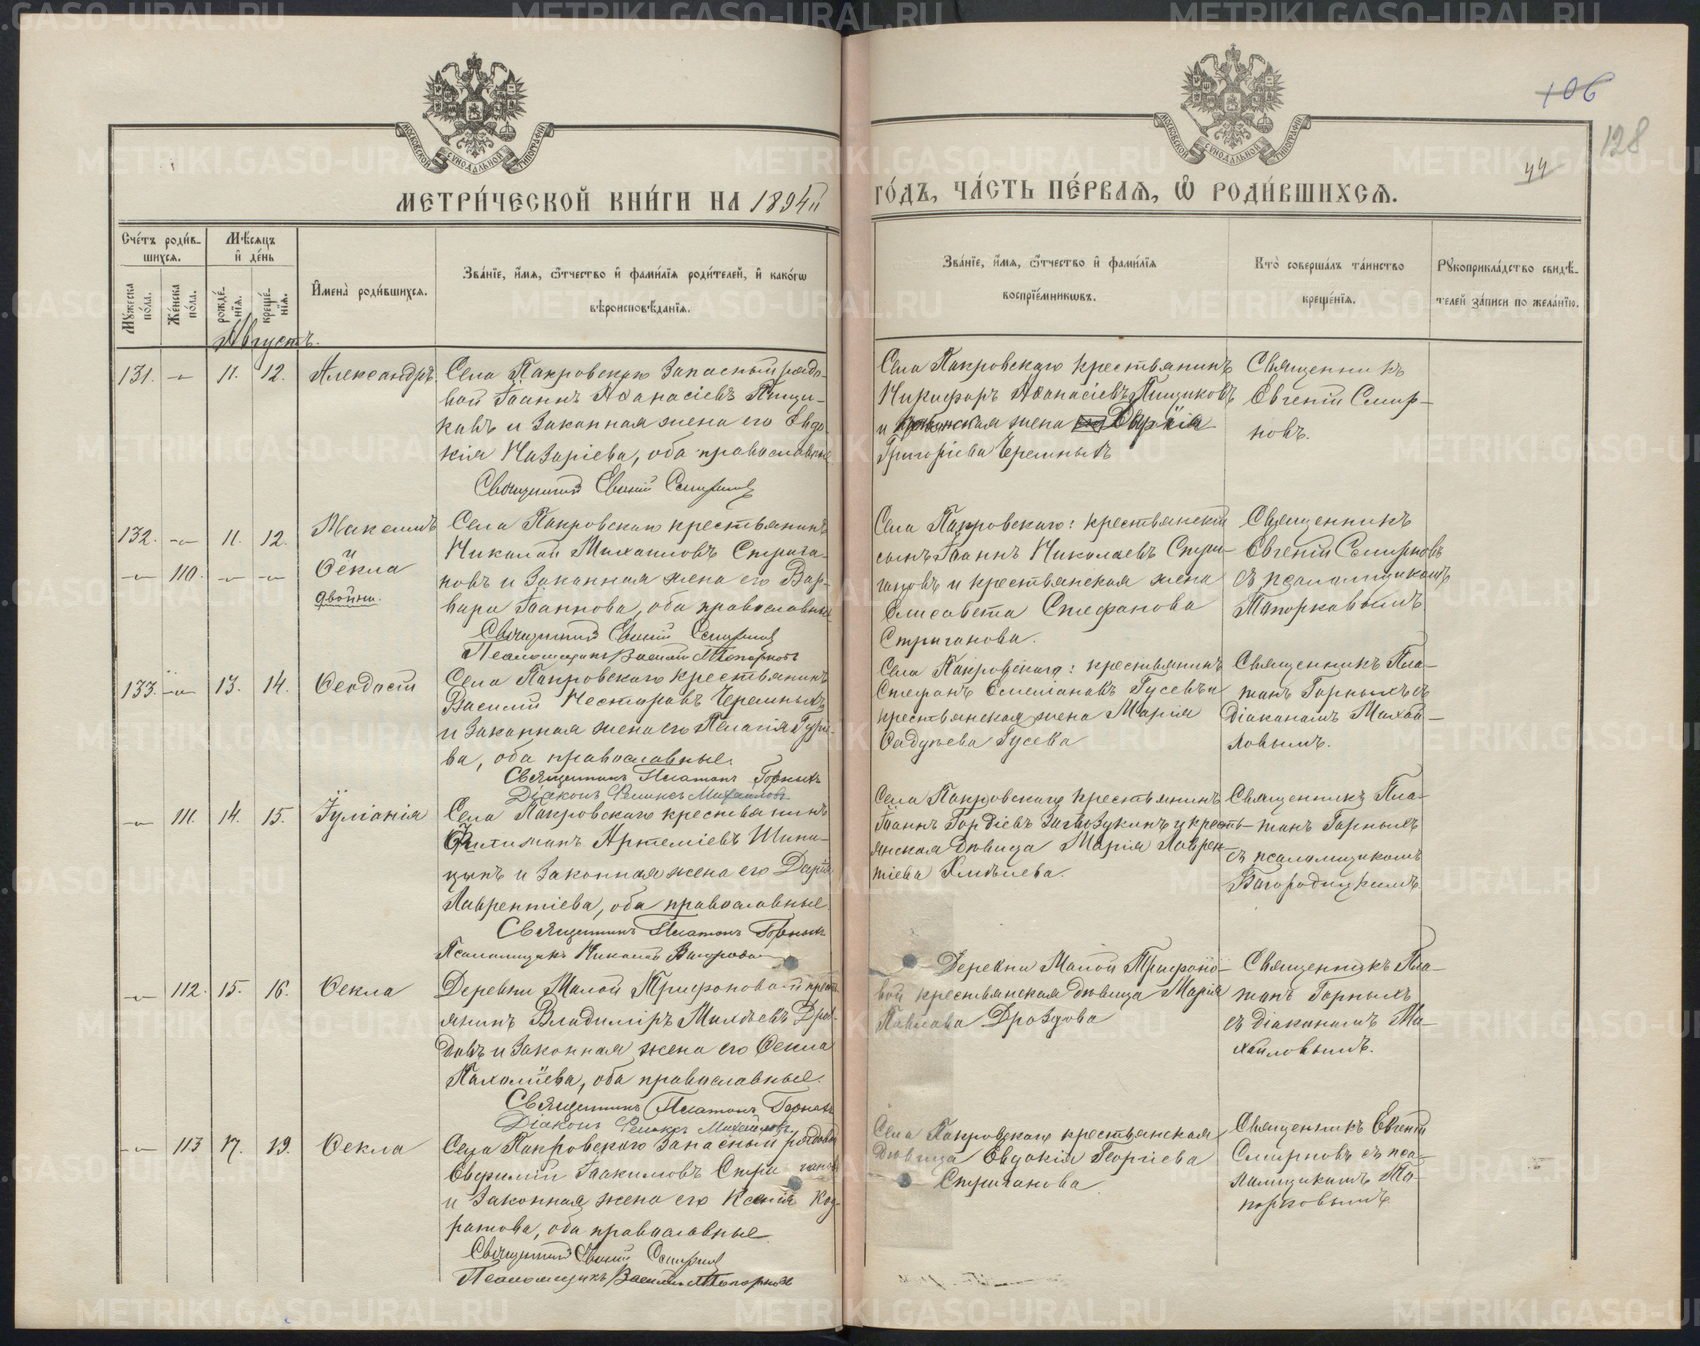 METRIKI.GASO-URAL.RU
106
128
44
МОСКОВСКОЙ СѴНОДАЛЬНОЙ ТИПОГРАФІИ
МЕТРИ́ЧЕСКОЙ КНИ́ГИ НА 1894й
ГО́ДЪ, ЧА́СТЬ ПЕ́РВАЯ, Ѡ҆ РОДИ́ВШИХСЯ.
Сче́тъ роди́в-
шихся.
Мꙋ́жеска по́ла.
Же́нска по́ла.
Мѣ́сяцъ
и҆ де́нь
рожде́-
нїѧ.
креще́-
нїѧ.
И҆мена̀ роди́вшихся.
Зва́нїе, и҆́мя, ѻ҆́тчество и҆ фами́лїя роди́телей, и҆ како́гѡ
вѣроисповѣ́данїя.
Зва́нїе, и҆́мя, ѻ҆́тчество и҆ фами́лїя
воспрїе́мникѡвъ.
Кто̀ соверша́лъ та́инство
креще́нїя.
Рꙋкоприкла́дство свидѣ́-
телей за́писи по жела́нїю.
Августъ.
131. 11. 12. Александръ.
Села Покровскаго Запасный рядо-
вой Іоаннъ Аѳанасіевъ Пищи-
ковъ и Законная жена его Евдо-
кія Назаріева, оба православные
Священникъ Евгеній Смирновъ
Села Покровскаго крестьянинъ
Никифоръ Аѳанасіевъ Пищиковъ
и крестьянская жена Дарія
Григоріева Черемныхъ
Священникъ
Евгеній Смир-
новъ.
132. 11. 12. Максимъ
110. и Ѳекла
двойни.
Села Покровскаго крестьянинъ
Николай Михаиловъ Стрига-
новъ и Законная жена его Вар-
вара Іоаннова, оба православные
Священникъ Евгеній Смирновъ
Псаломщикъ Василій Топорковъ
Села Покровскаго: крестьянскій
сынъ Іоаннъ Николаевъ Стри-
гановъ и крестьянская жена
Елисавета Стефанова
Стриганова.
Священникъ
Евгеній Смирновъ
съ псаломщикомъ
Топорковымъ
133. 13. 14. Ѳеодосій
Села Покровскаго крестьянинъ
Василій Несторовъ Черемныхъ
и Законная жена его Пелагія Гурі-
ва, оба православные.
Священникъ Платонъ Горныхъ
Діаконъ Феликсъ Михайловъ
Села Покровскаго: крестьянинъ
Стефанъ Емеліановъ Гусевъ и
крестьянская жена Марія
Савдтьева Гусева
Священникъ Пла-
тонъ Горныхъ съ
діакономъ Михай-
ловымъ.
111. 14. 15. Іуліанія
Села Покровскаго крестьянинъ
Филимонъ Артеміевъ Шипи-
цынъ и Законная жена его Дарія
Лаврентіева, оба православные
Священникъ Платонъ Горныхъ
Псаломщикъ Николай
Села Покровскаго крестьянинъ
Іоаннъ Гордіевъ и кресть-
янская дѣвица Марія Лаврен-
тіева
Священникъ Пла-
тонъ Горныхъ
съ псаломщикомъ
Богородицкимъ
112. 15. 16. Ѳекла
Деревни Малой Трифоновой кресть-
янинъ Владиміръ Матѳеевъ Дроз-
довъ и Законная жена его Ѳекла
Пахоміева, оба православные.
Священникъ Платонъ Горныхъ
Діаконъ Феликсъ Михайловъ
Деревни Малой Трифоно-
вой крестьянская дѣвица Марія
Павлова Дроздова
Священникъ Пла-
тонъ Горныхъ
съ діакономъ Ми-
хайловымъ.
113 17. 19. Ѳекла
Села Покровскаго Запасный рядовой
Евфимій Іоакимовъ Стригановъ
и Законная жена его Ксенія Код-
ратова, оба православные
Священникъ Евгеній Смирновъ
Псаломщикъ Василій Топорковъ
Села Покровскаго крестьянская
дѣвица Евдокія Георгіева
Стриганова
Священникъ Евгеній
Смирновъ съ пса-
ломщикомъ То-
порковымъ